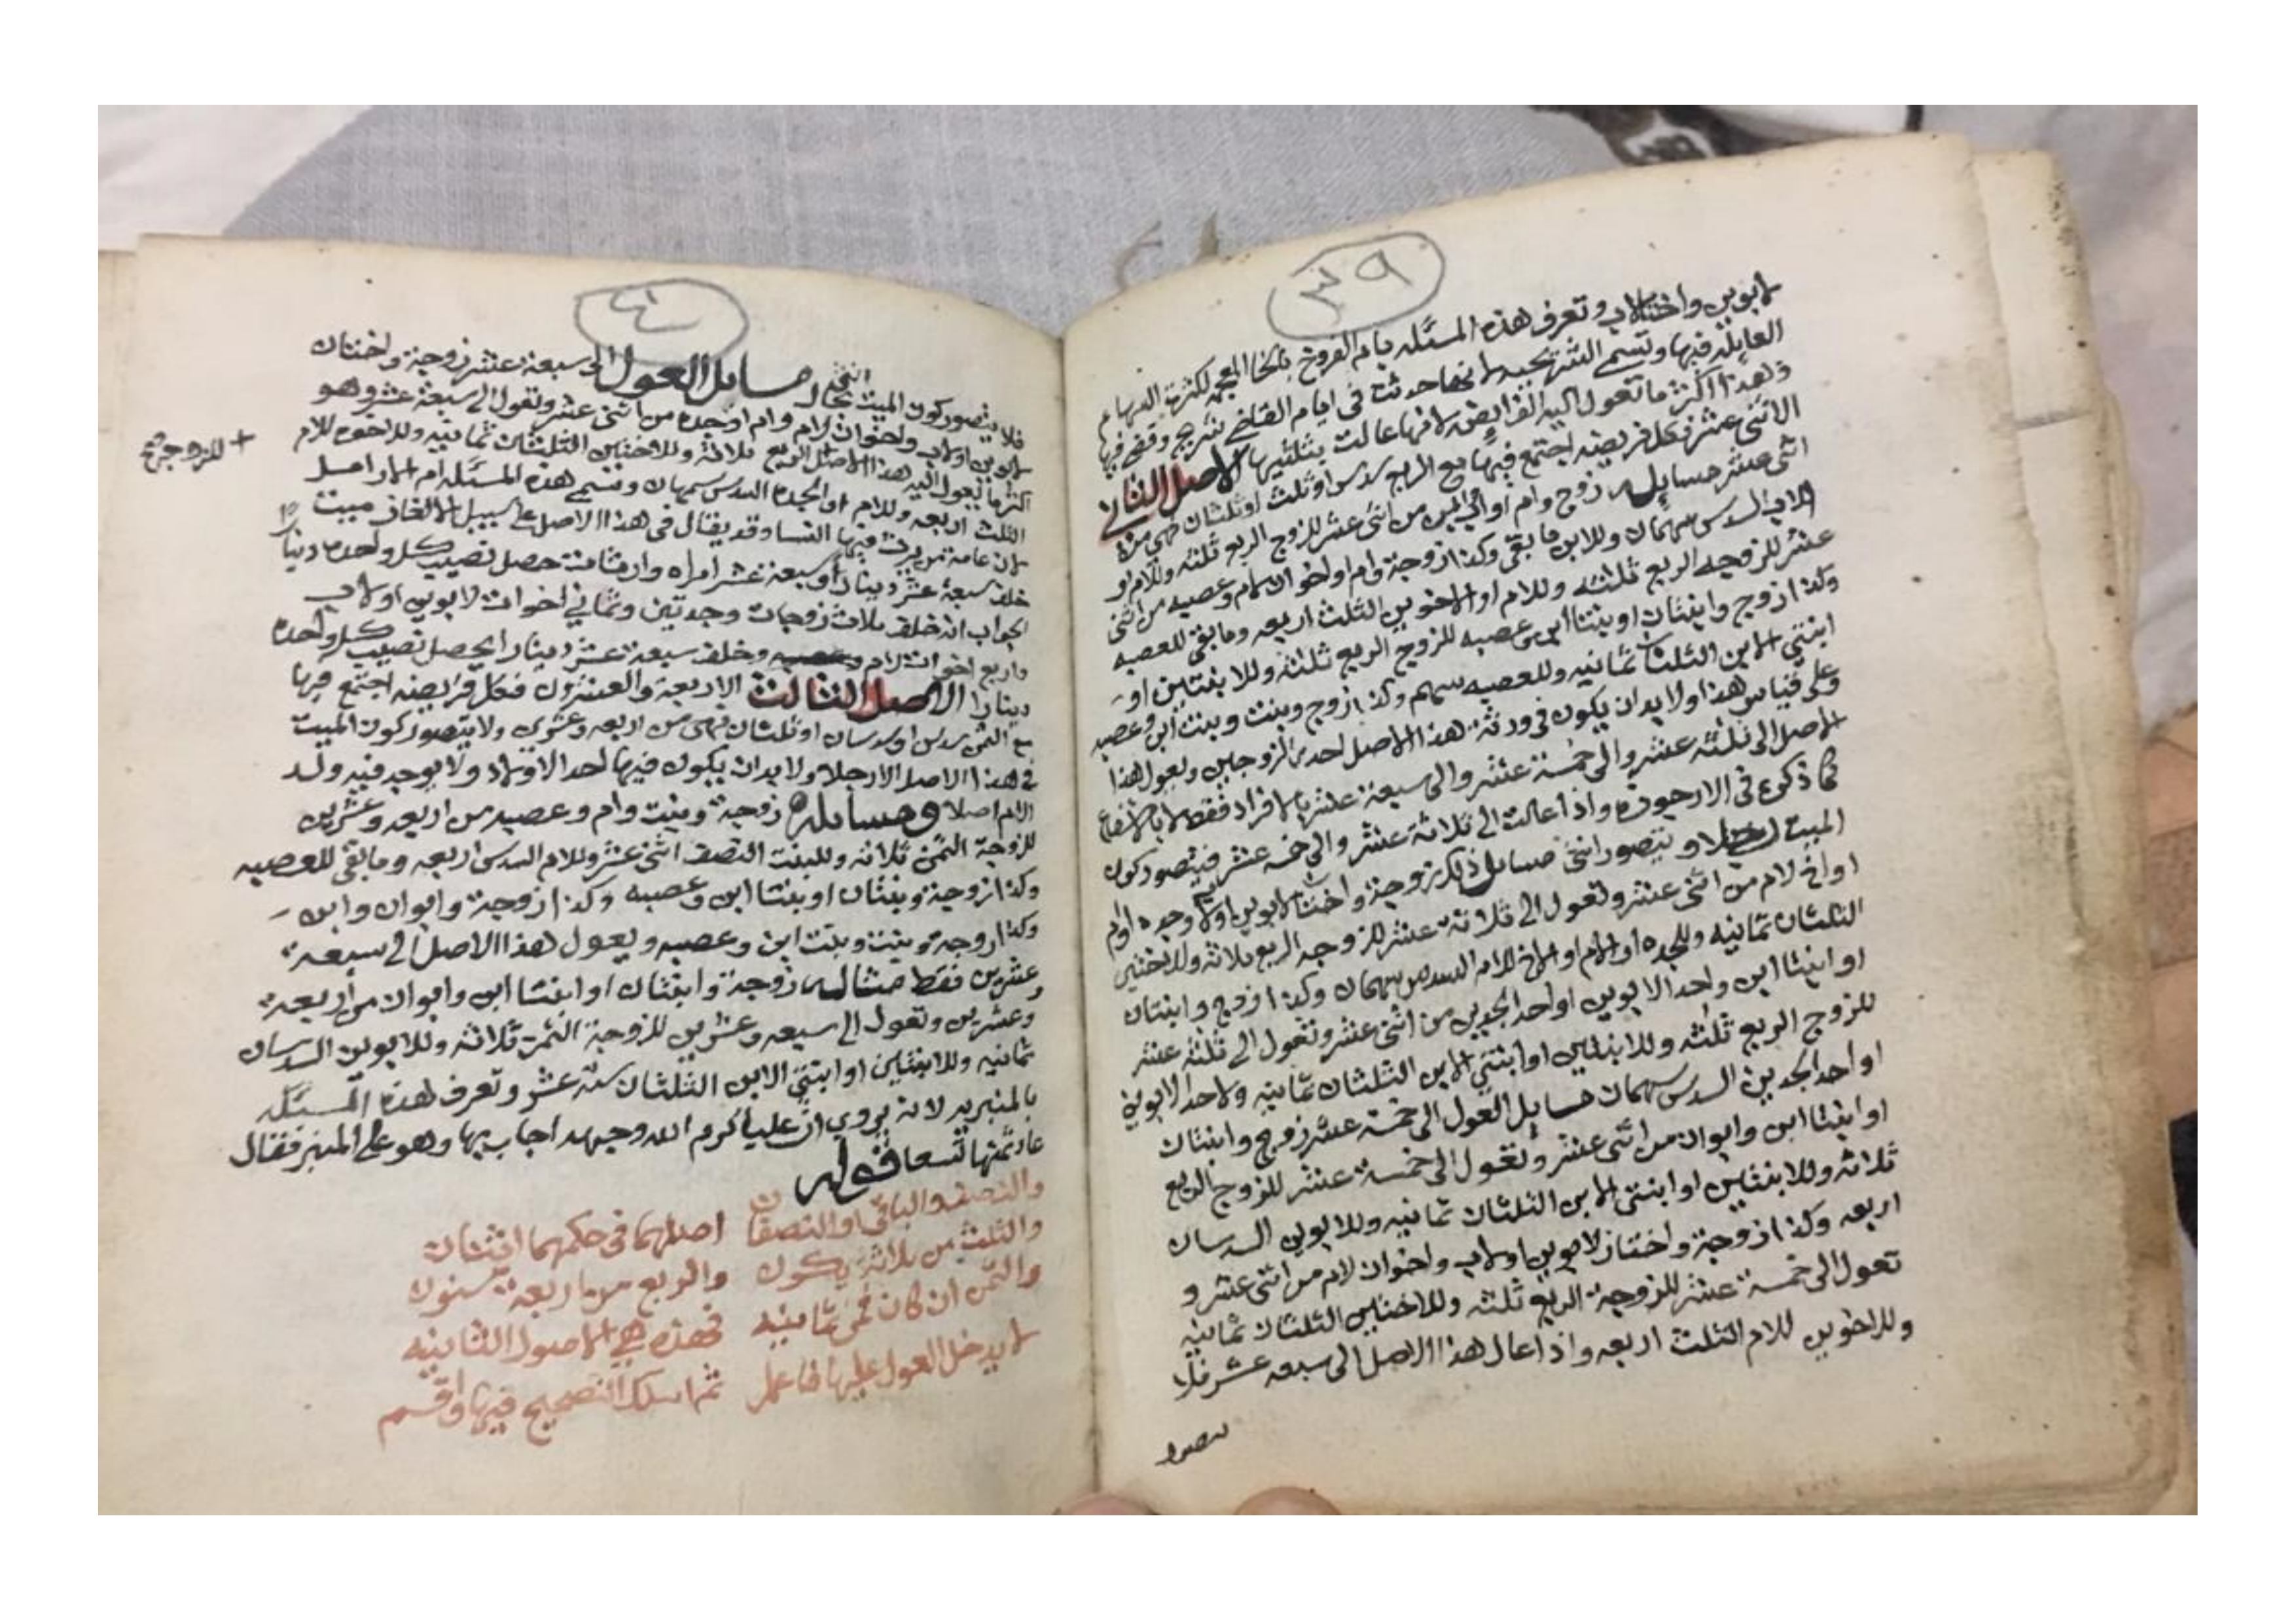 ٣٩
لابوين واختلاب وتعرف هذه المسئله بام الفروخ بالخا المعجمه لكثرة السهام
العايله فيها وتسمى الشريحيه لانها حدثت في ايام القاضي شريح وقضى فيها
وهذا اكثر ما تعول اليه الفرايض لانها عالت بثلثيها الاصل الثاني
الاثنى عشر فكل فريضه اجتمع فيها مع الربع سدس او ثلث او ثلثان فهي من
اثنى عشر مسايله زوج وام او اب وابن من اثنى عشر للزوج الربع ثلثه وللام او
للاب السدس سهمان وللابن ما بقي وكذا زوجة وام او اخوان لام وعصبه من اثنى
عشر للزوجه الربع ثلثه وللام او الاخوين الثلث اربعه وما بقي للعصبه
وكذا زوج وابنتان او بنتا ابن وعصبه للزوج الربع ثلثه وللابنتين او
ابنتي الابن الثلثان ثمانيه وللعصبه سهم وكذا زوج وبنت وبنت ابن وعصبه
وعلى قياس هذا ولا بد ان يكون في ورثة هذا الاصل احد الزوجين ويعول هذا
الاصل الى ثلثه عشر والى خمسة عشر والى سبعة عشر بالافراد فقط لا بالاشفاع
كما ذكره في الارجوزه واذا عالت الى ثلاثة عشر والى خمسه عشر فيتصور كون
الميت رجلا ويتصور انثى مسايل ذلك زوجة واختان لابوين اولاب وجده او ام
او اخ لام من اثنى عشر وتعول الى ثلاثة عشر للزوجه الربع ثلاثه وللاختين
الثلثان ثمانيه وللجده او الام او الاخ للام السدس سهمان وكذا زوج وابنتان
او ابنتا ابن واحد الابوين او احد الجدين من اثنى عشر وتعول الى ثلثه عشر
للزوج الربع ثلثه وللابنتين او ابنتي الابن الثلثان ثمانيه ولاحد الابوين
او احد الجدين السدس سهمان مسايل العول الى خمسة عشر زوج وابنتان
او ابنتا ابن وابوان من اثنى عشر وتعول الى خمسة عشر للزوج الربع
ثلاثه وللابنتين او ابنتي الابن الثلثان ثمانيه وللابوين السدسان
اربعه وكذا زوجة واختان لابوين اولاب واخوان لام من اثنى عشر و
تعول الى خمسة عشر للزوجة الربع ثلثه وللاختين الثلثان ثمانيه
وللاخوين للام الثلث اربعه واذا عال هذا الاصل الى سبعه عشر فلا
يتصور
٤٠
فلا يتصور كون الميت بحال انثى مسايل العول الى سبعة عشر زوجة واختان
لابوين اولاب واخوان لام وام او جده من اثنى عشر وتعول الى سبعة عشر وهو
اكثر ما يعول اليه هذا الاصل الربع ثلاثة وللاختين الثلثان ثمانيه وللاخوه للام
+ للزوجة
الثلث اربعه وللام او الجده السدس سهمان وتسمى هذه المسئله ام الارامل
لان عامة من يرث فيها النسا وقد يقال في هذا الاصل على سبيل الالغاز ميت
خلف سبعة عشر دينارا وسبعة عشر امراه وارثات حصل نصيب كل واحده دينارا
الجواب انه خلف ثلاث زوجات وجدتين وثماني اخوات لابوين اولاب
واربع اخوات لام وخلف سبعة عشر دينارا يحصل نصيب كل واحدة
دينارا الاصل الثالث الاربعة والعشرون فكل فريضه اجتمع فيها
مع الثمن سدس او سدسان او ثلثان فهي من اربعه وعشرين ولا يتصور كون الميت
في هذا الاصل الا رجلا ولا بد ان يكون فيها احد الاولاد ولا يوجد فيه ولد
الام اصلا ومسايله زوجة وبنت وام وعصبه من اربعه وعشرين
للزوجة الثمن ثلاثه وللبنت النصف اثنى عشر وللام السدس اربعه وما بقي للعصبه
وكذا زوجة وبنتان او بنتا ابن وعصبه وكذا زوجة وابوان وابن
وكذا زوجة وبنت وبنت ابن وعصبه ويعول هذا الاصل الى سبعة
وعشرين فقط مثاله زوجة وابنتان او ابنتا ابن وابوان من اربعة
وعشرين وتعول الى سبعه وعشرين للزوجة الثمن ثلاثه وللابوين السدسان
ثمانيه وللابنتين او ابنتي الابن الثلثان ستة عشر وتعرف هذه المسئله
بالمنبريه لانه يروي ان عليا كرم الله وجهه اجاب بها وهو على المنبر فقال
عاد ثمنها تسعا قوله
والنصف والباقي او النصفان اصلهما في حكمهما اثنان
والثلث من ثلاثة يكون والربع من اربعة مسنون
والثمن ان كان فمن ثمانيه فهذه هي الاصول الثانيه
لا يدخل العول عليها فاعلم ثم اسلك التصحيح فيها واقسم